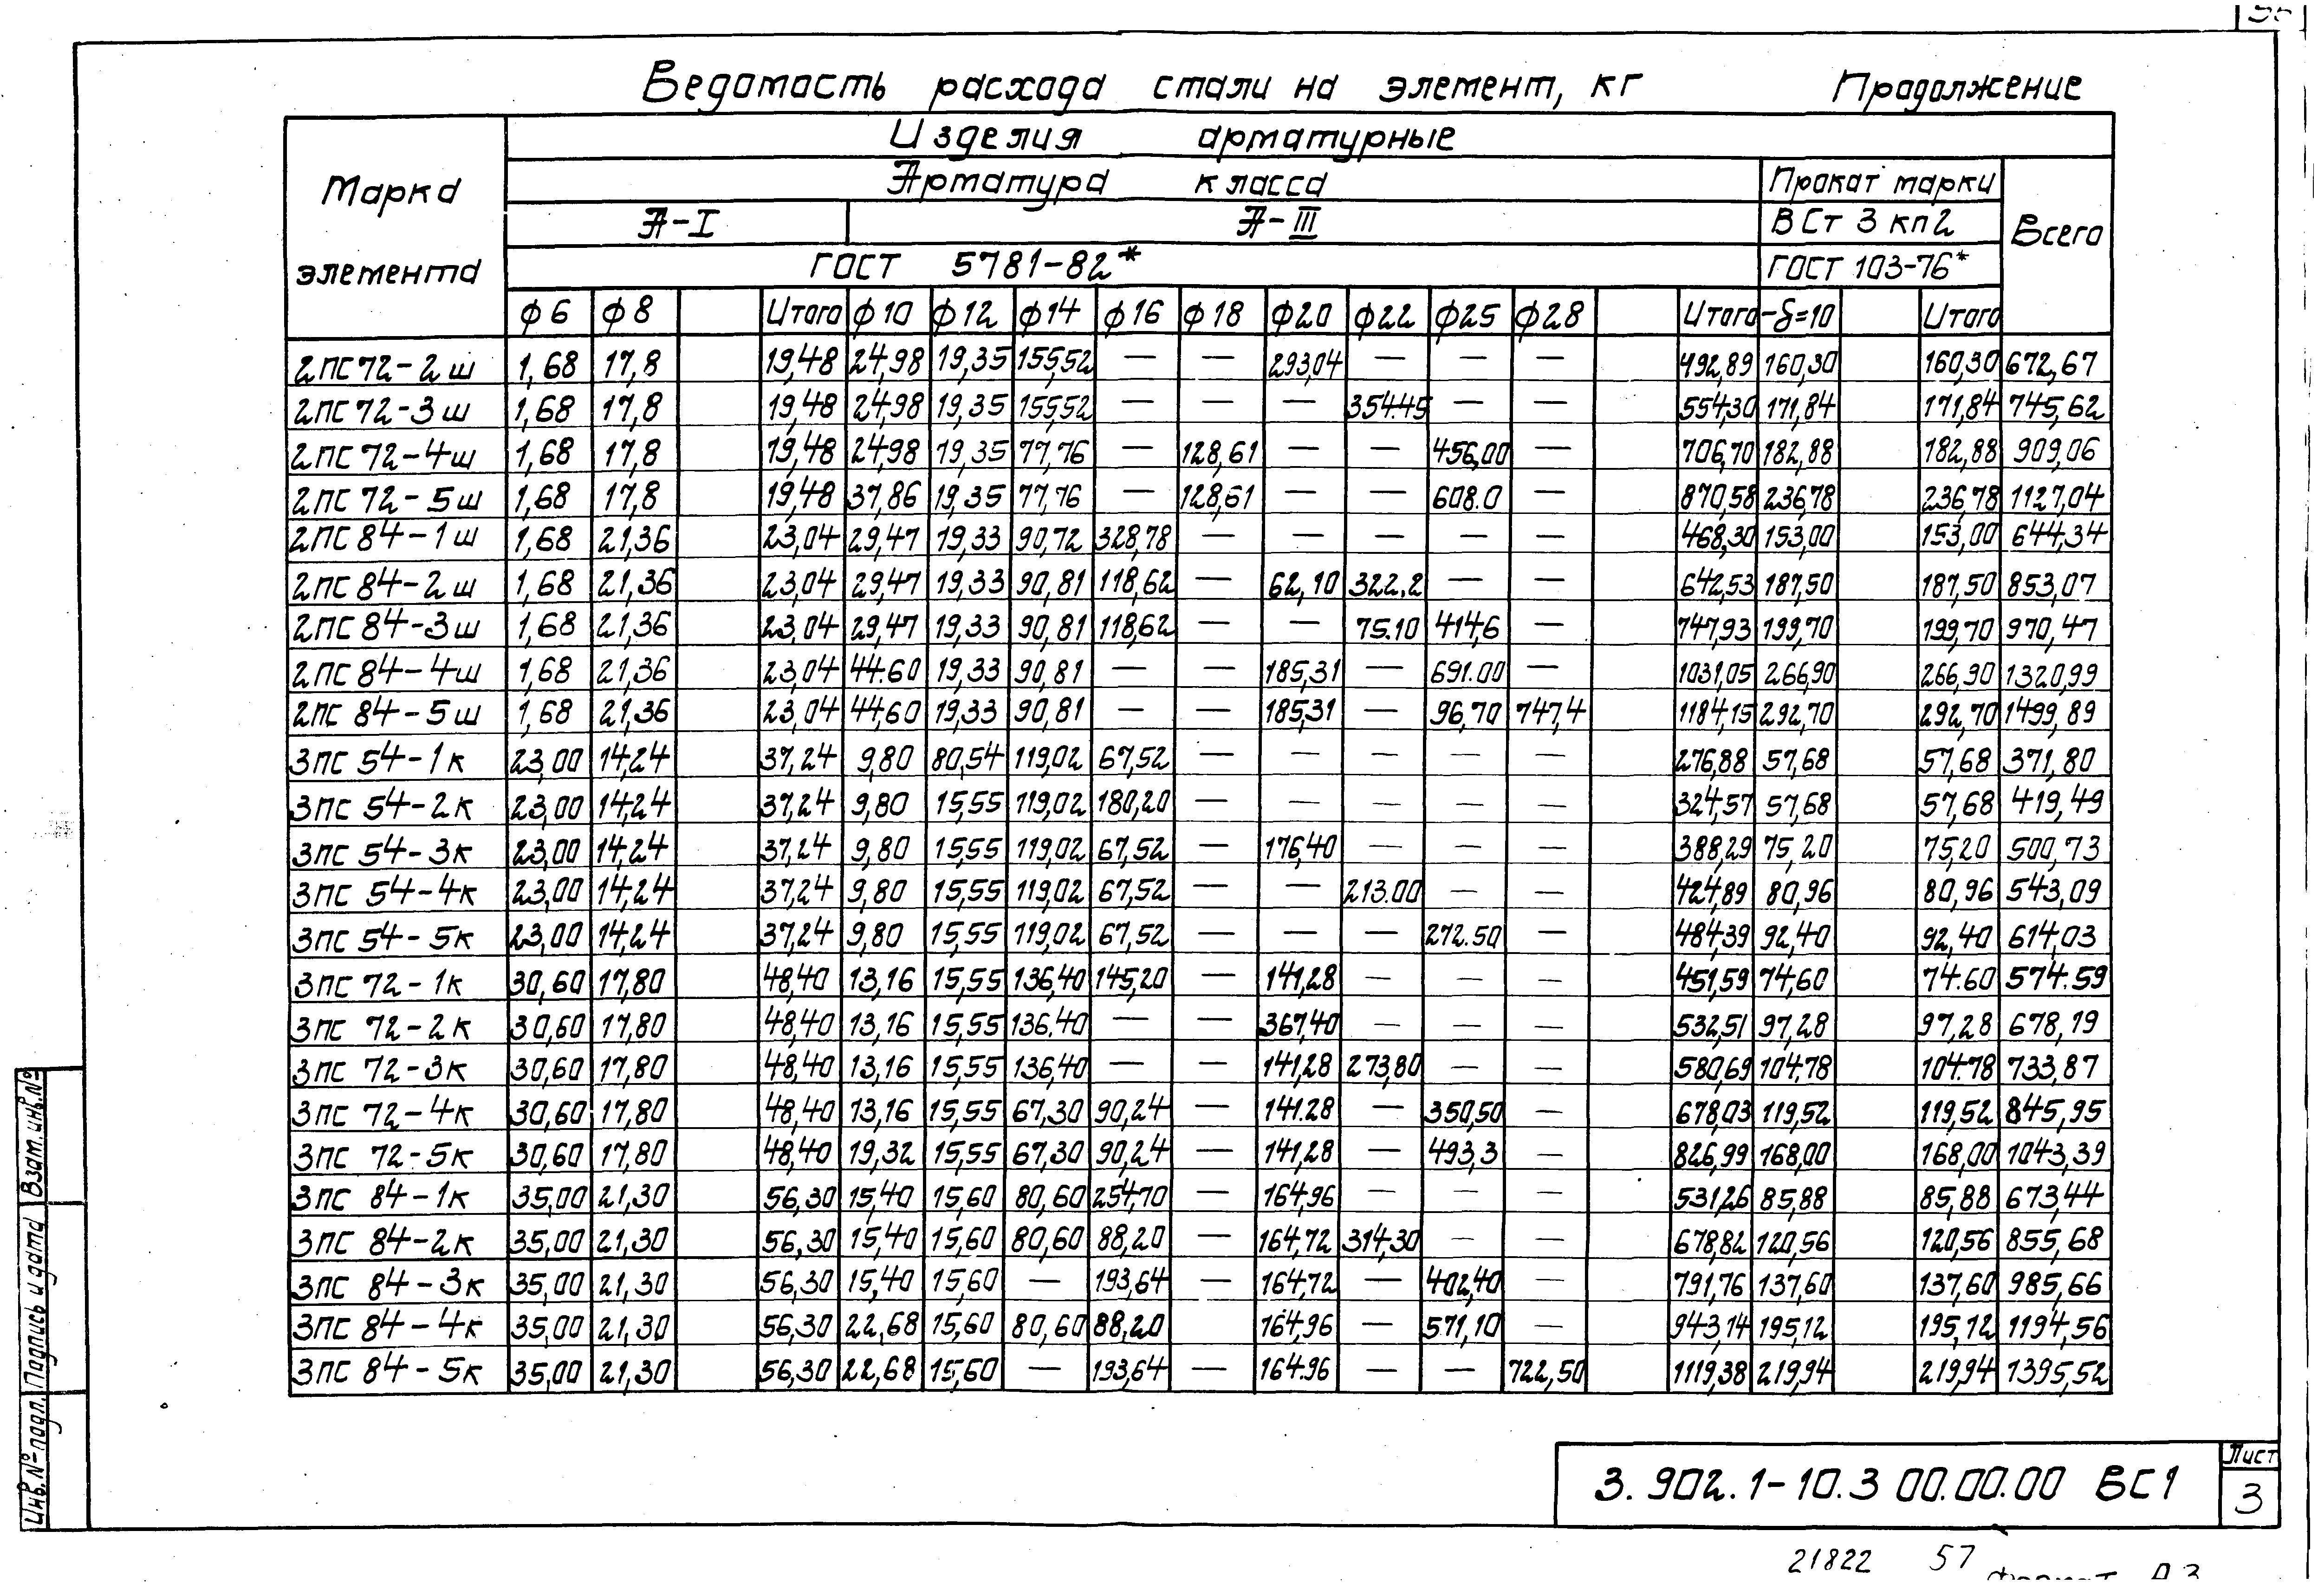 Ведомость расхода стали на элемент, кг Продолжение
Марка элемента
Изделия арматурные
Арматура класса
Прокат марки
Всего
А-I А-III ВСт 3 кп2
ГОСТ 5781-82* ГОСТ 103-76*
ф6 ф8 Итого ф10 ф12 ф14 ф16 ф18 ф20 ф22 ф25 ф28 Итого -δ=10 Итого
2ПС72-2ш 1,68 17,8 19,48 24,98 19,35 155,52 — — 293,04 — — — 492,89 160,30 160,30 672,67
2ПС72-3ш 1,68 17,8 19,48 24,98 19,35 155,52 — — — 354.45 — — 554,30 171,84 171,84 745,62
2ПС72-4ш 1,68 17,8 19,48 24,98 19,35 77,76 — 128,61 — — 456,00 — 706,70 182,88 182,88 909,06
2ПС72-5ш 1,68 17,8 19,48 37,86 19,35 77,76 — 128,61 — — 608.0 — 870,58 236,78 236,78 1127,04
2ПС84-1ш 1,68 21,36 23,04 29,47 19,33 90,72 328,78 — — — — — 468,30 153,00 153,00 644,34
2ПС84-2ш 1,68 21,36 23,04 29,47 19,33 90,81 118,62 — 62,10 322,2 — — 642,53 187,50 187,50 853,07
2ПС84-3ш 1,68 21,36 23,04 29,47 19,33 90,81 118,62 — — 75.10 414,6 — 747,93 199,70 199,70 970,47
2ПС84-4ш 1,68 21,36 23,04 44.60 19,33 90,81 — — 185,31 — 691.00 — 1031,05 266,90 266,90 1320,99
2ПС 84-5ш 1,68 21,36 23,04 44,60 19,33 90,81 — — 185,31 — 96,70 747,4 1184,15 292,70 292,70 1499,89
3ПС 54-1к 23,00 14,24 37,24 9,80 80,54 119,02 67,52 — — — — — 276,88 57,68 57,68 371,80
3ПС 54-2к 23,00 14,24 37,24 9,80 15,55 119,02 180,20 — — — — — 324,57 57,68 57,68 419,49
3ПС 54-3к 23,00 14,24 37,24 9,80 15,55 119,02 67,52 — 176,40 — — — 388,29 75,20 75,20 500,73
3ПС 54-4к 23,00 14,24 37,24 9,80 15,55 119,02 67,52 — — 213.00 — — 424,89 80,96 80,96 543,09
3ПС 54-5к 23,00 14,24 37,24 9,80 15,55 119,02 67,52 — — — 272.50 — 484,39 92,40 92,40 614,03
3ПС 72-1к 30,60 17,80 48,40 13,16 15,55 136,40 145,20 — 141,28 — — — 451,59 74,60 74.60 574.59
3ПС 72-2к 30,60 17,80 48,40 13,16 15,55 136.40 — — 367,40 — — — 532,51 97,28 97,28 678,19
3ПС 72-3к 30,60 17,80 48,40 13,16 15,55 136,40 — — 141,28 273,80 — — 580,69 104,78 104.78 733,87
3ПС 72-4к 30,60 17,80 48,40 13,16 15,55 67,30 90,24 — 141.28 — 350,50 — 678,03 119,52 119,52 845,95
3ПС 72-5к 30,60 17,80 48,40 19,32 15,55 67,30 90,24 — 141,28 — 493,3 — 826,99 168,00 168,00 1043,39
3ПС 84-1к 35,00 21,30 56,30 15,40 15,60 80,60 254,70 — 164,96 — — — 531,26 85,88 85,88 673,44
3ПС 84-2к 35,00 21,30 56,30 15,40 15,60 80,60 88,20 — 164,72 314,30 — — 678,82 120,56 120,56 855,68
3ПС 84-3к 35,00 21,30 56,30 15,40 15,60 — 193,64 — 164,72 — 402,40 — 791,76 137,60 137,60 985,66
3ПС 84-4к 35,00 21,30 56,30 22,68 15,60 80,60 88,20 — 164,96 — 571,10 — 943,14 195,12 195,12 1194,56
3ПС 84-5к 35,00 21,30 56,30 22,68 15,60 — 193,64 — 164.96 — — 722,50 1119,38 219,94 219,94 1395,52
3.902.1-10.3 00.00.00 ВС1
Лист
3
Инв.№подл. Подпись и дата Взам.инв.№
21822 57
А3